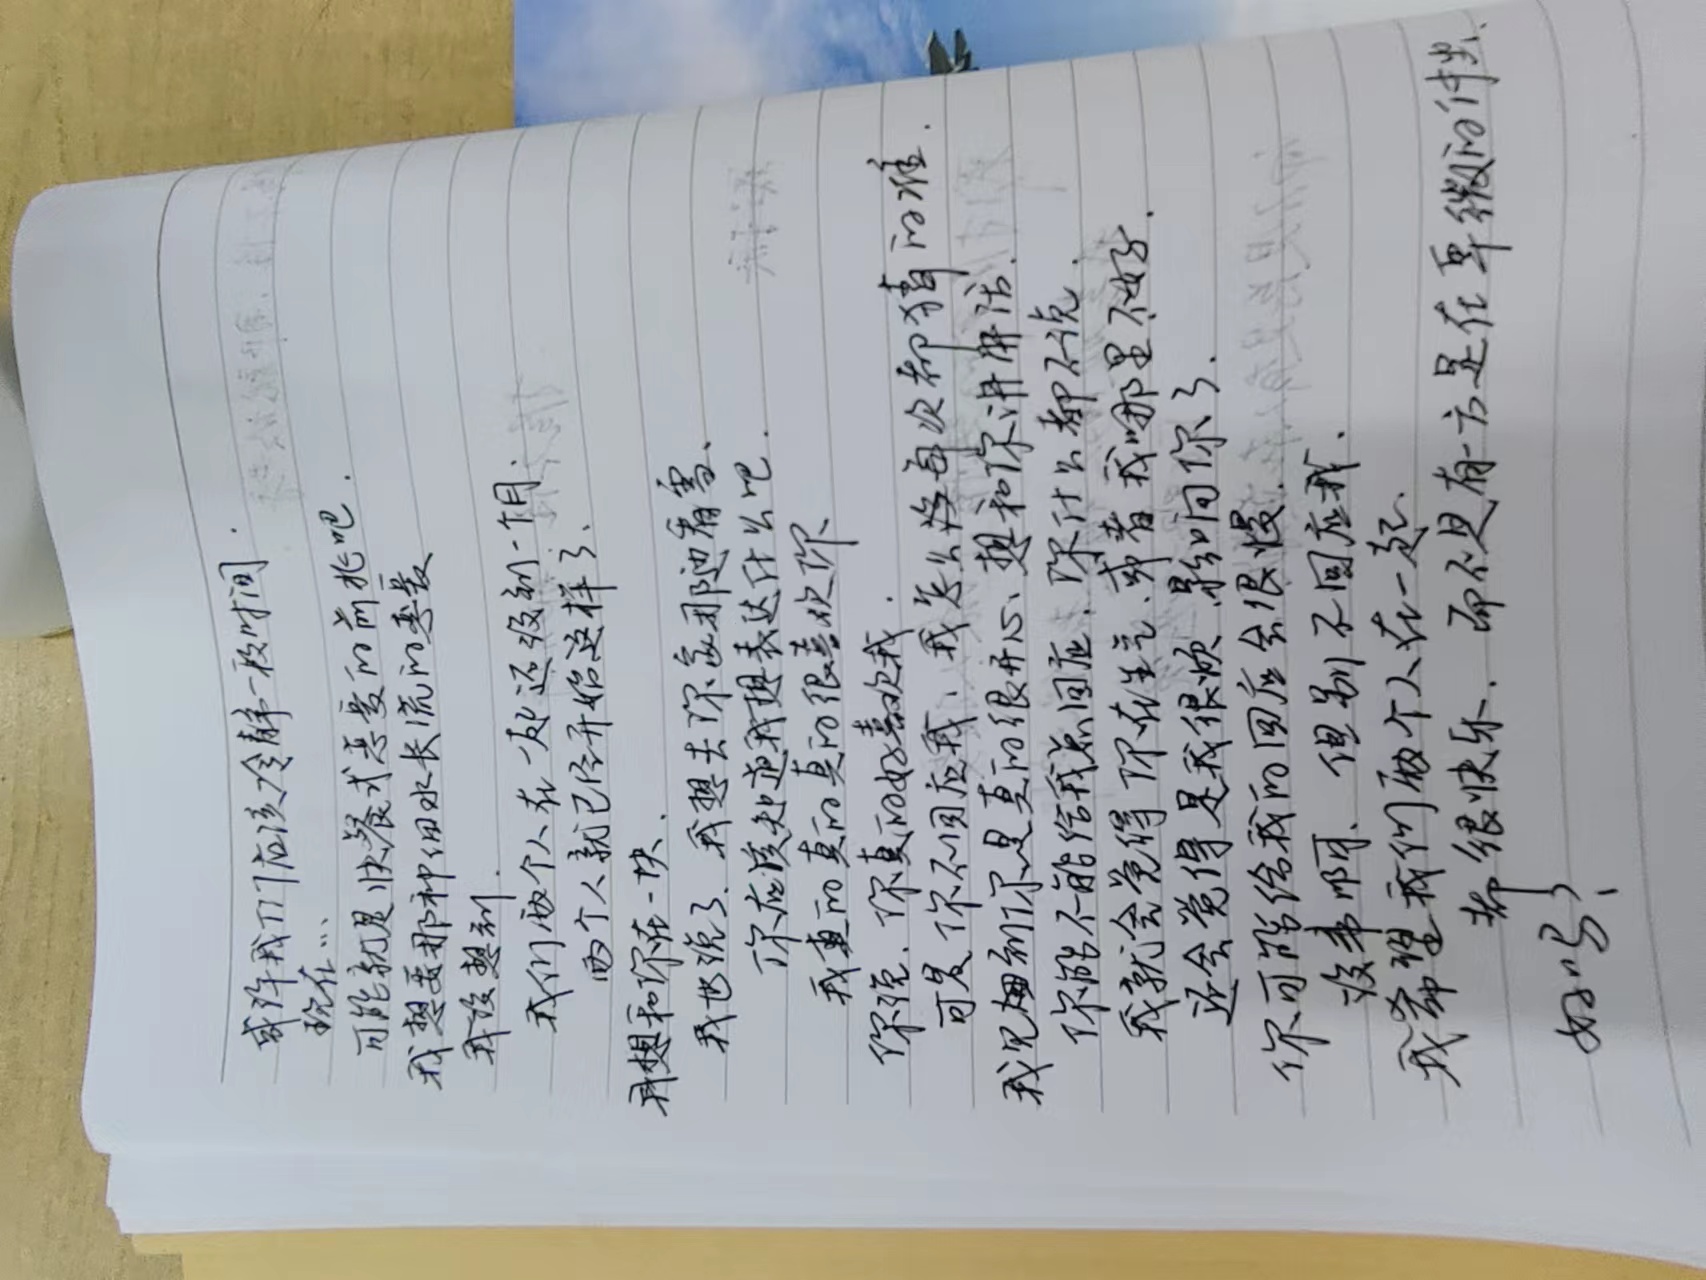 或许我们应该冷静一段时间.
现在...
可能就是快餐式恋爱的前兆吧.
我想要那种细水长流的恋爱
我没想到.
我们两个人在一起还没到一个月.
两个人就已经开始这样了、
我想和你在一块、
我也说了、我想去你家那边看雪、
你应该知道我想表达什么吧.
我真的真的真的很喜欢你
你说、你真的好喜欢我.
可是你不回应我、我怎么将每次都猜的准.
我见面到你是真的很开心、想和你讲讲话.
你能不能给我点回应.你什么都不说.
我就会觉得你在生气、或者我哪里不好.
还会觉得是我很烦.影响你了.
你可能给我的回应会很慢.
没事啊、但别不回应我.
我希望我们两个人在一起、
都很快乐、而不是有一方是在卑微的付出.
好吗!